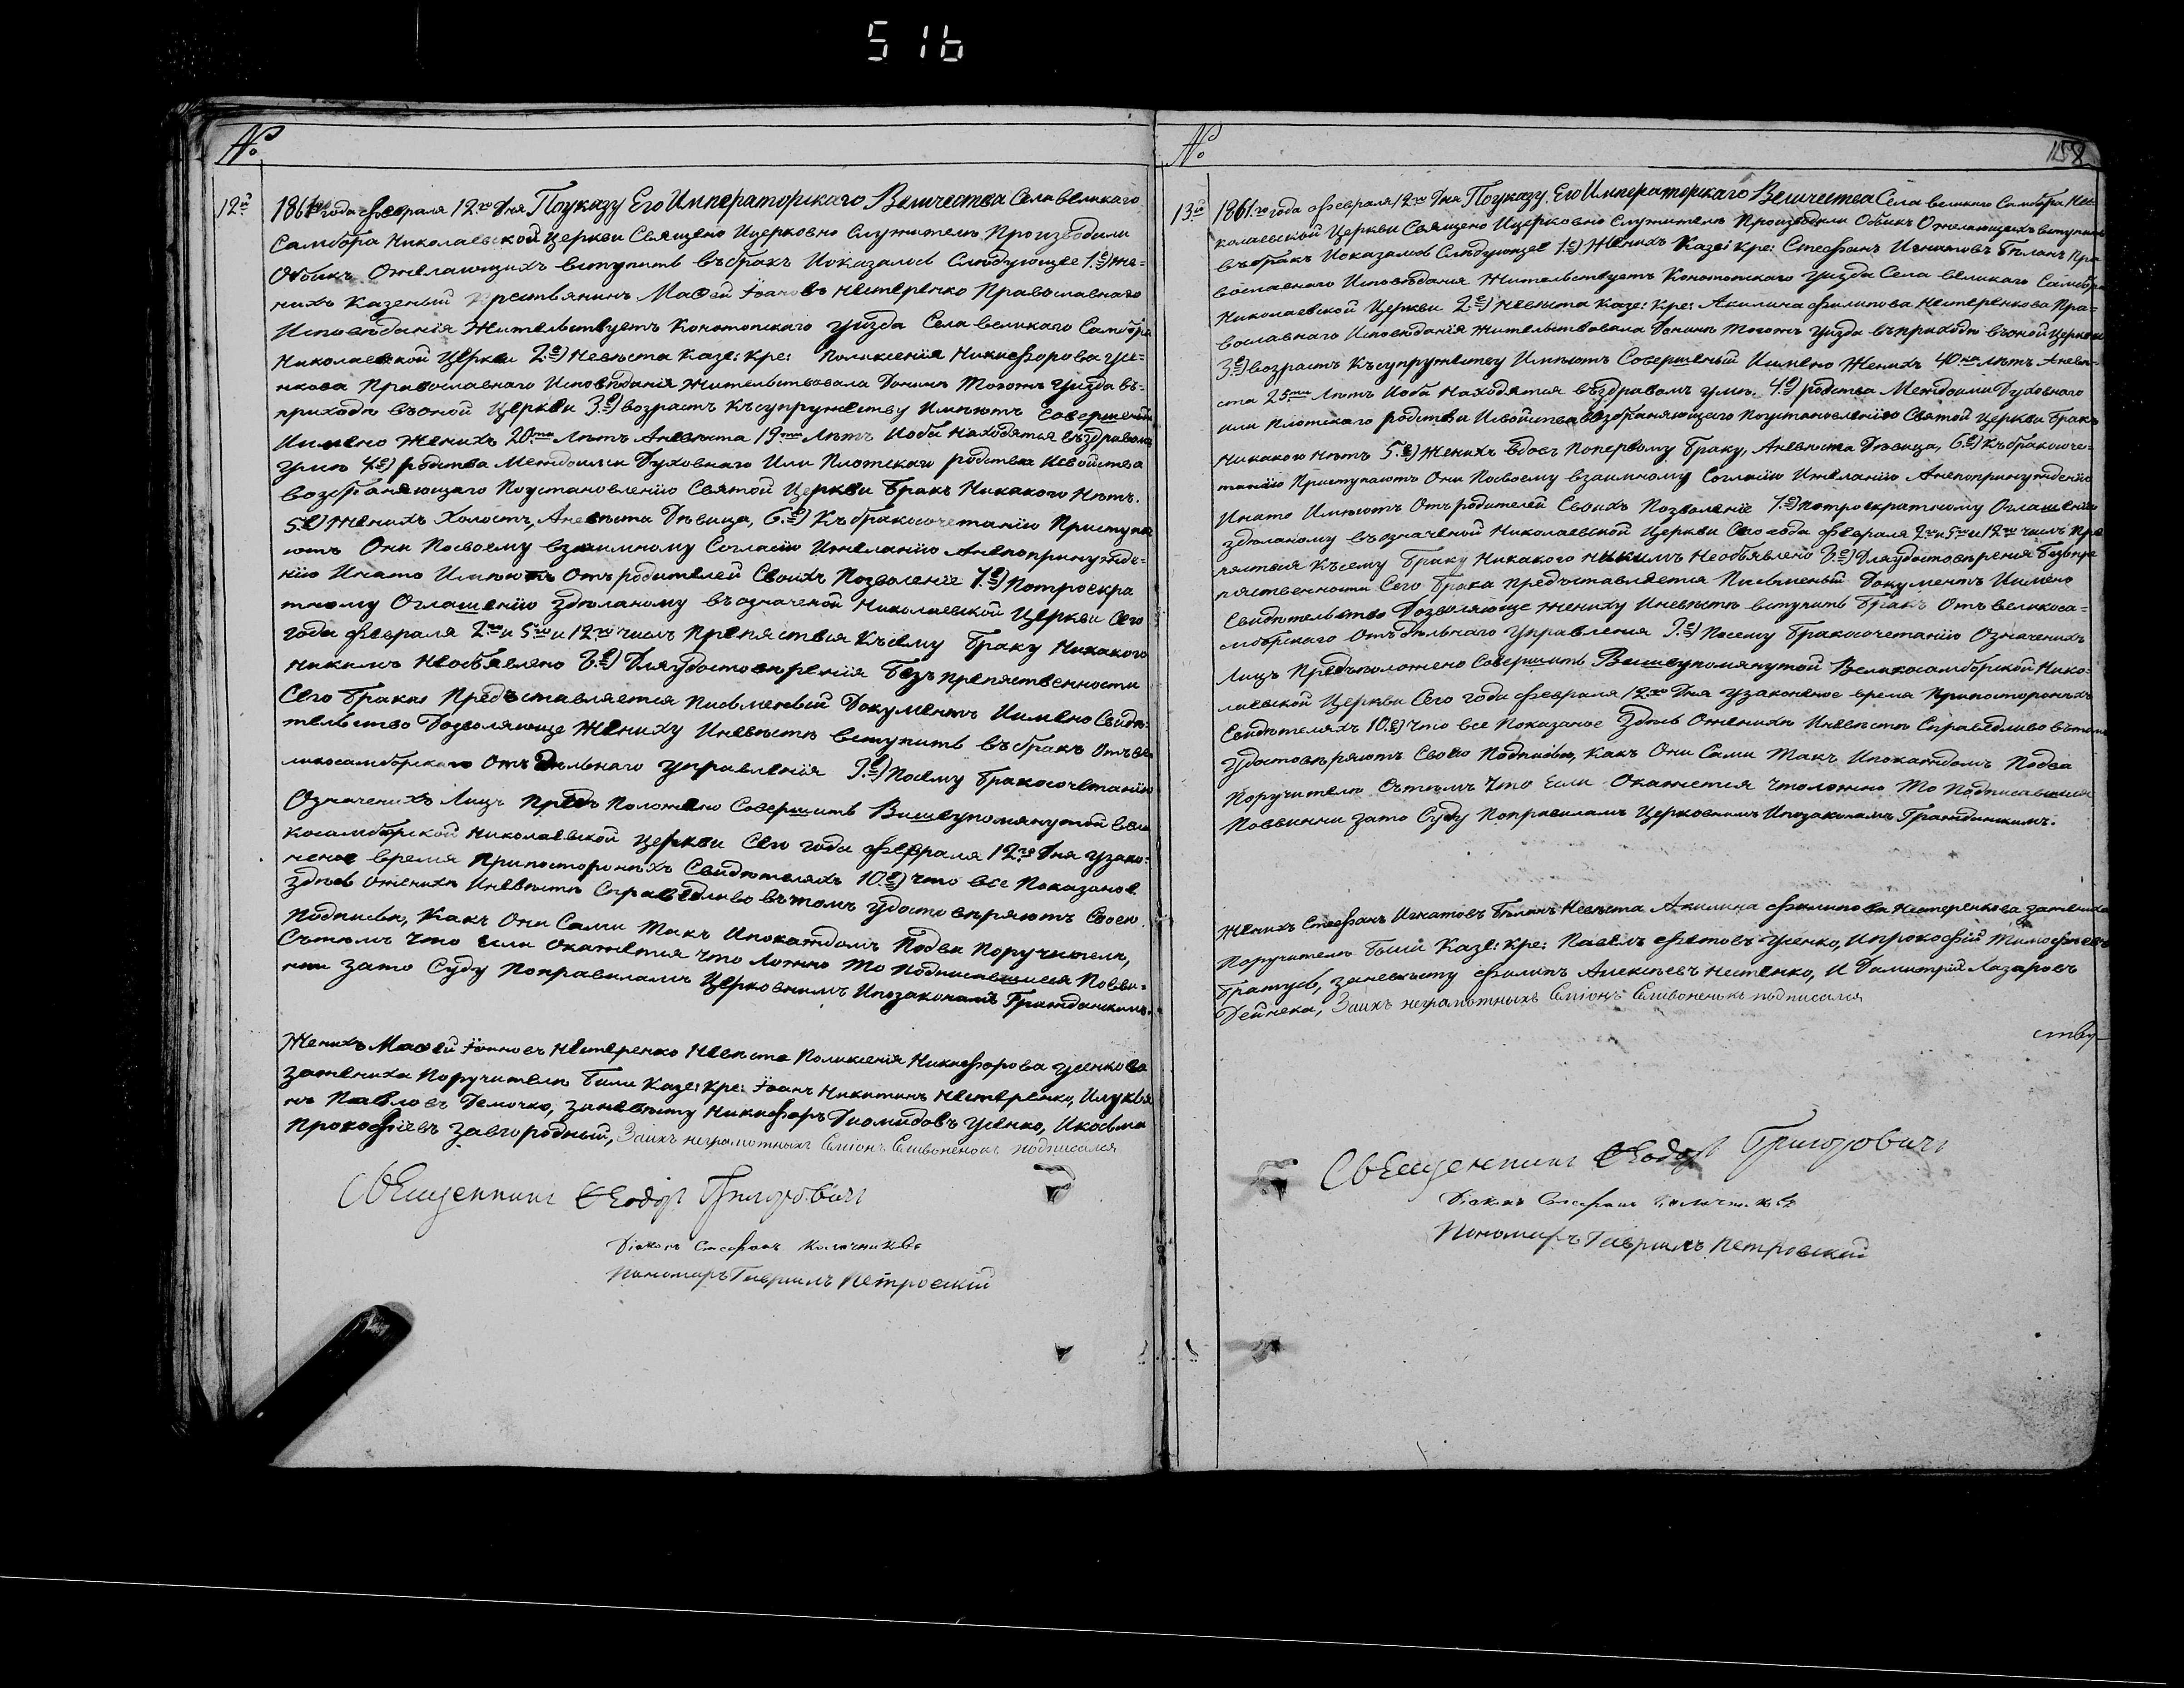 516
№
12й
1861го года февраля 12го Дня Поуказу Его Императорскаго Величества Села великаго
Самбора Николаевской Церкви Священо Ицерковно Служителъ Производили
Обыскъ Ожелающихъ вступить въбракъ Иоказалось Слѣдующее 1.е) Же=
нихъ Казеный Крестьянинъ Мафей Іоановъ Нестеренко Православнаго
Исповѣданія Жительствуетъ Конотопскаго уизда Села великаго Самбора
Николаевской Церкви 2.е) Невѣста Казе: Кре: Поликсенія Никифорова Усе=
нкова Православнаго Исповѣданія Жительствовала Донинъ Тогожъ уизда въ=
приходѣ въоной Церкви 3.е) возрастъ Късупружеству Имѣютъ Совершеный
Иимено Женихъ 20ти Лѣтъ Аневѣста 19ти Лѣтъ Иоба Находятся въздравомъ
умѣ 4.е) родства Междоими Духовнаго Или Плотскаго родства Исвойства
возбраняющаго Поустановленію Святой Церкви Бракъ Никакого Нѣтъ.
5.е) Женихъ Холостъ, Аневѣста Дѣвица, 6.е) Къбракосочетанію Приступа
ютъ Они Посвоему взаимному Согласію Ижеланію Анепопринужде=
нію Инато Имѣютъ Отъ родителей Своихъ Позволеніе 7.е) Потроекра
тному Оглашенію здѣланому въозначеной Николаевской Церкви Сего
года февраля 2го и 5го и 12го числъ Препяствія Късему Браку Никакого
Никимъ Необявлено 8.е) Дляудостовѣренія Безъ препяственности
Сего Брака Предъставляется Писменый Документъ Иимено Свидѣ=
тельство Дозволяюще Жениху Иневѣстѣ вступить въбракъ Отъве
ликосамборскаго Отъ Дѣльнаго управленія 9.е) Посему Бракосочетанію
Означенихъ Лицъ Предъ Положено Совершить Вишеупомянутой Вели
косамборской Николаевской Церкви Сего года февраля 12го Дня узако=
неное время Припостороннихъ Свидѣтеляхъ 10.е) что все Показаное
Здѣсь Оженихѣ Иневѣстѣ Справедливо вътомъ удостовѣряютъ Своею
Подписью, Какъ Они Сами Такъ Ипокаждомъ Подва Поручителя,
Сътѣмъ что если Окажется что Ложно То Подписавшися Повви=
ни зато Суду Поправиламъ Церковнимъ Ипозаконамъ Гражданскимъ.
Женихъ Мафей Іоановъ Нестеренко Невѣста Поликсенія Никифорова Усенкова
Зажениха Поручителѣ Били Казе: Кре: Іоанъ Никитинъ Нестеренко, Илукья
нъ Павловъ Демочко, Заневѣсту Никифоръ Диомидовъ Усенко, Икосьма
Прокофіевъ Завгородный, Заихъ неграмотныхъ Симіонъ Сливоненокъ подписался
Священникъ Ѳеодоръ Григоровичъ
Діаконъ Стефанъ
Пономаръ Гавріилъ Петровскій
№
1158
13й
1861го года февраля 12го Дня Поуказу Его Императорскаго Величества Села великаго Самбора Ни=
колаевской Церкви Священо Ицерковно Служителъ Производили Обыскъ Ожелающихъ вступить
въбракъ Иоказалось Слѣдующее 1.е) Женихъ Казе: Кре: Стефанъ Игнатовъ Биланъ Пра
вославнаго Исповѣданія Жительствуетъ Конотопскаго уизда Села великаго Самбора
Николаевской Церкви 2.е) Невѣста Казе: Кре: Акилина Филипова Нестеренкова Пра=
вославнаго Исповѣданія Жительствовала Донинъ Тогожъ уизда въприходѣ въоной Церкви
3.е) возрастъ Късупружеству Имѣютъ Совершеный Иимено Женихъ 40ка лѣтъ Аневѣ=
ста 25ти Лѣтъ Иоба Находятся въздравомъ умѣ 4.е) родства Междоими Духовнаго
или Плотскаго родства Исвойства Возбраняющаго Поустановленію Святой Церкви Бракъ
Никакого Нѣтъ 5.е) Женихъ вдовъ Попервому Браку, Аневѣста Дѣвица, 6.е) Къбракосоче=
танію Приступаютъ Они Посвоему взаимному Согласію Ижеланію Анепопринужденію
Инато Имѣютъ Отъ родителей Своихъ Позволеніе 7.е) Потроекратному Оглашенію
здѣланому въозначеной Николаевской Церкви Сего года февраля 2го и 5го и 12го числъ Пре
пяствія Късему Браку Никакого Никимъ Необъявлено 8.е) Дляудостовѣренія Безъпре
пяственности Сего Брака Предъставляется Писменый Документъ Иимено
Свидѣтельство Дозволяюще Жениху Иневѣстѣ вступить Бракъ Отъ великоса=
мборскаго Отъдѣльнаго управленія 9.е) Посему Бракосочетанію Означенихъ
Лицъ Предъположено Совершить Вишеупомянутой Великосамборской Нико=
лаевской Церкви Сего года февраля 12го Дня узаконеное время Припостороннихъ
Свидѣтеляхъ 10.е) что все Показаное Здѣсь Оженихѣ Иневѣстѣ Справедливо вътомъ
удостовѣряютъ Своею Подписью, Какъ Они Сами Такъ Ипокаждомъ Подва
Поручителя Сътѣмъ Что Если Окажется Чтоложно То Подписавшися
Поввинни зато Суду Поправиламъ Церковнимъ Ипозаконамъ Гражданскимъ.
Женихъ Стефанъ Игнатовъ Биланъ Невѣста Акилина Филипова Нестеренкова зажениха
Поручителѣ Были Казе: Кре: Павелъ Фотовъ Усенко, Ипрокофій Тимофѣевъ
Братусь, заневѣсту Филипъ Алексѣевъ Нестенко, И Димитрій Лазаровъ
Дейнека, Заихъ неграмотныхъ Симіонъ Сливоненокъ подписался
ству
Священникъ Ѳеодоръ Григоровичъ
Діаконъ Стефанъ
Пономаръ Гавріилъ Петровскій